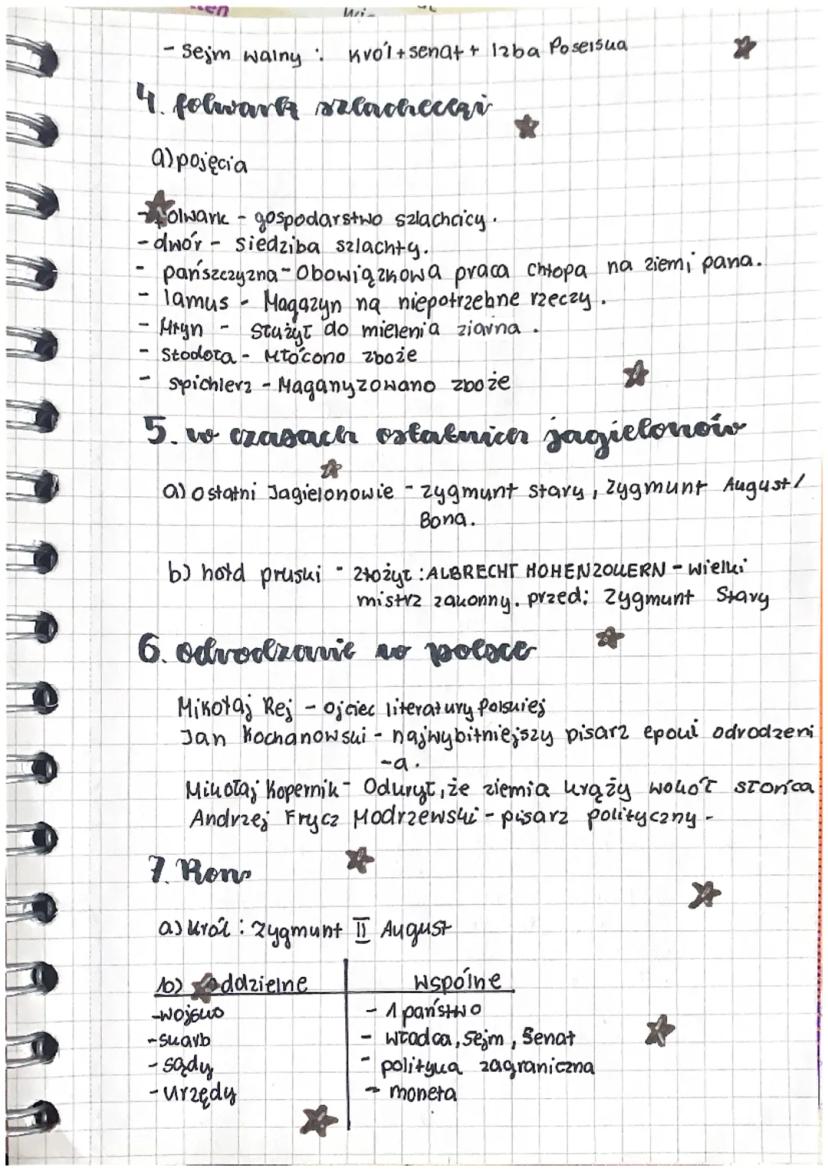 - Sejm walny : Król + senat + Izba Poselska
4. folwark szlachecki
a) pojęcia
- folwark - gospodarstwo szlachcicy.
- dwór - siedziba szlachty.
- pańszczyzna - Obowiązkowa praca chłopa na ziemi pana.
- lamus - Magazyn na niepotrzebne rzeczy.
- Młyn - służył do mielenia ziarna.
- Stodoła - Młócono zboże
- spichlerz - Maganyzowano zboże
5. w czasach ostatnich jagielonów
a) ostatni Jagielonowie - zygmunt stary, zygmunt August/
Bona.
b) hołd pruski - złożył : ALBRECHT HOHENZOLLERN - wielki
mistrz zakonny. przed: zygmunt Stary
6. odrodzanie w polsce
Mikołaj Rej - ojciec literatury Polskiej
Jan Kochanowski - najwybitniejszy pisarz epoki odrodzeni
-a.
Mikołaj Kopernik - Odkrył, że ziemia krąży wokół słońca
Andrzej Frycz Modrzewski - pisarz polityczny -
7. Ron
a) król : zygmunt II August
b) oddzielne
wspólne
- wojsko
- 1 państwo
- skarb
- władca, Sejm, Senat
- sądy
- polityka zagraniczna
- urzędy
- moneta